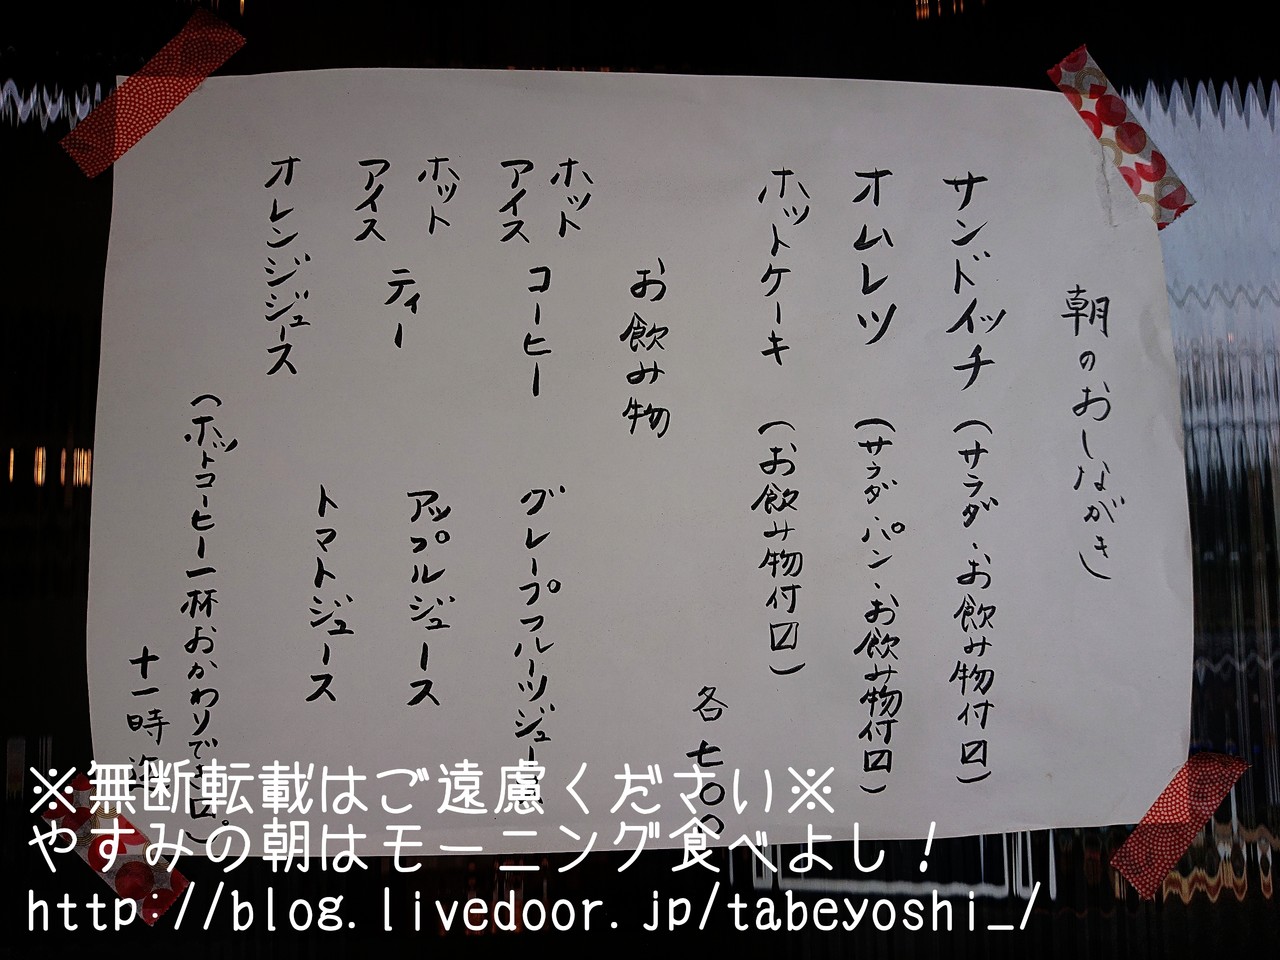 朝のおしながき
サンドイッチ(サラダ・お飲み物付〼)
オムレツ(サラダ・パン・お飲み物付〼)
ホットケーキ(お飲み物付〼)
各七〇〇
お飲み物
ホット
アイス
コーヒー
ホット
アイス
ティー
オレンジジュース
グレープフルーツジュース
アップルジュース
トマトジュース
(ホットコーヒー一杯おかわりでき〼。)
十一時迄
※無断転載はご遠慮ください※
やすみの朝はモーニング食べよし!
http://blog.livedoor.jp/tabeyoshi_/